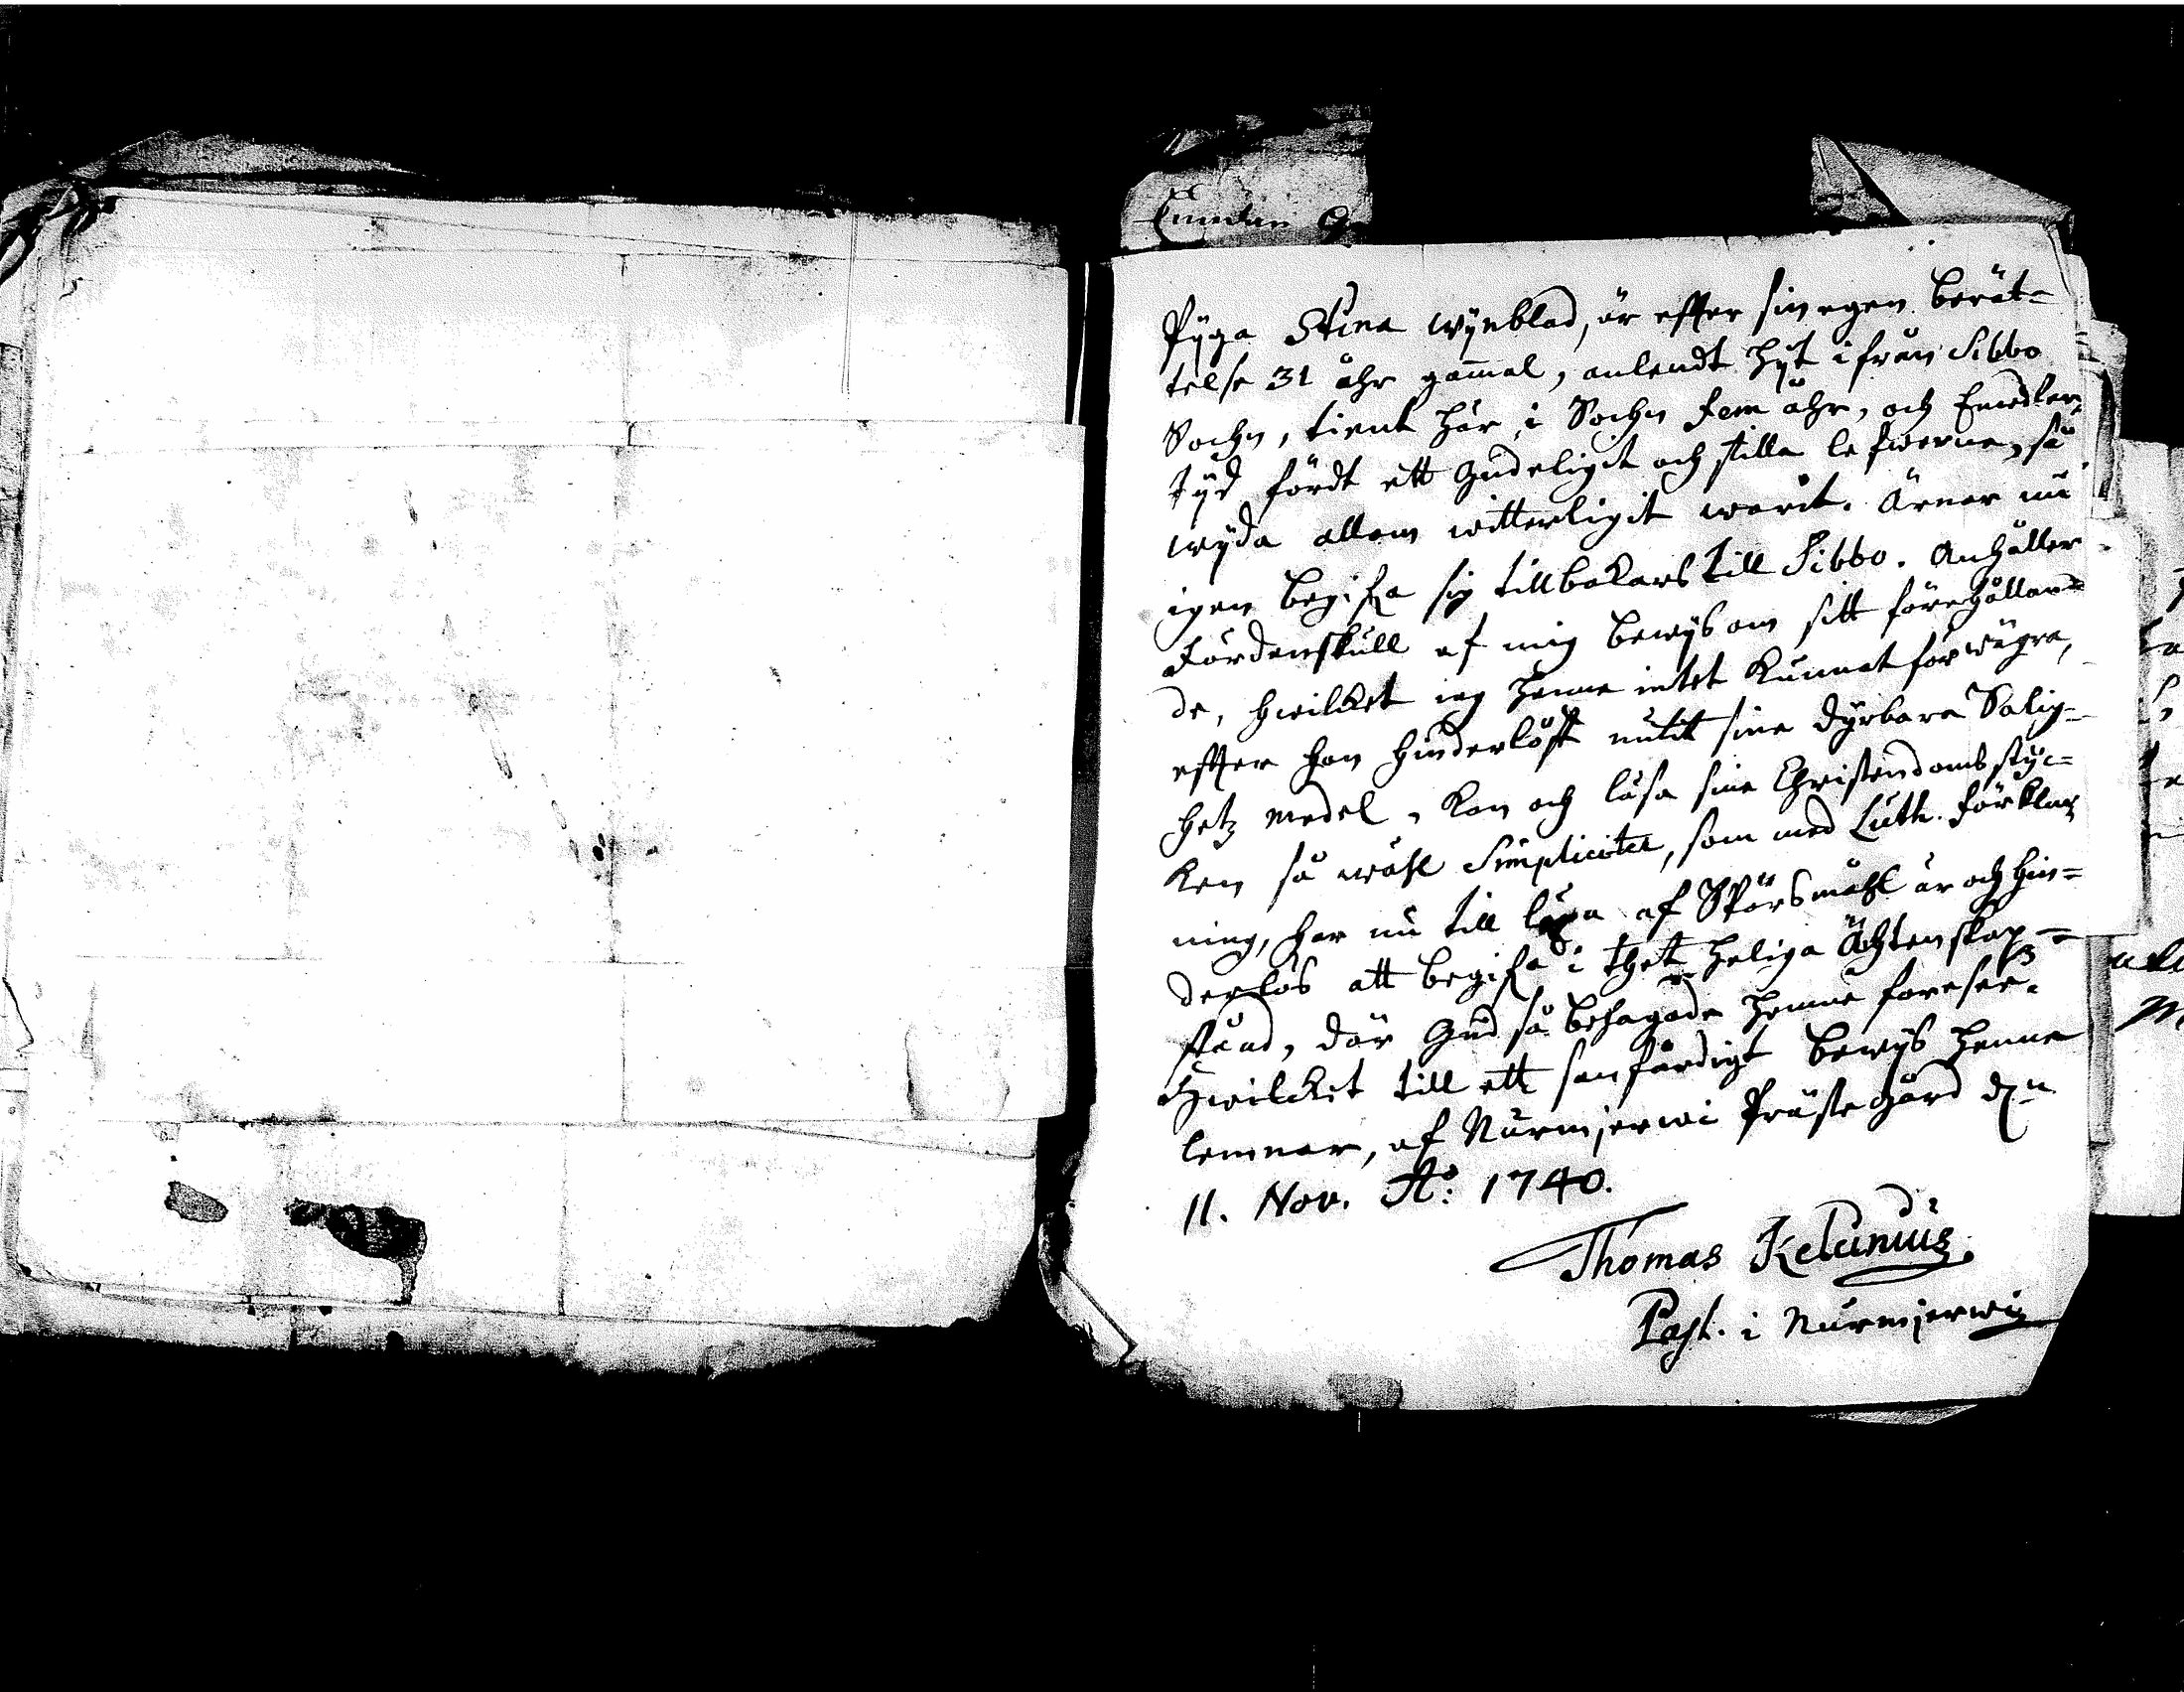 Pijga Stina Wijnblad, är effter sin egen berät=
telse 31 åhr gam̄al, anlendt hijt ifrån Sibbo
Sochn, tient här i Sochn fem åhr, och Emedler
tijd fördt ett Gudeligit och stilla lefwerne, så
wijda allom witterligit warit. Ärnar nu
igen begifa sig tillbakars till Sibbo. Anhåller
fördenskull af mig bewijs om sitt förehållan=
de, hwilket iag henne intet kunnat förwägra,
effter hon hinderlöst nutit sine dyrbara Salig=
hetz medel, kan och läsa sine Christendombs styc=
ken så wähl Simpliciter, som med Luth. förkla=
ning, har nu till lära af Spörsmåhl är och hin=
derlös att begifa i thet heliga Ächtenskap=
stånd, där Gud så behagade henne foresee.
Hwilckit till ett sanfärdigt bewijs henne
lemnar, af Nurmjerwi Prästegård d.n
11. Nov. A:o 1740.
Thomas Kelunius
Past. i Nurmjerwi